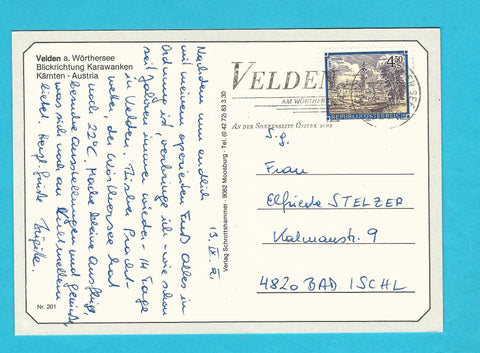 Velden a. Wörthersee
Blickrichtung Karawanken
Kärnten - Austria
Nachdem nun endlich
mit meinem operierten Fuß alles in
Ordnung ist, verbringe ich - wie schon
seit Jahren immer wieder - 14 Tage
in Velden.
wetter, der Wörthersee hat
noch 22°C. Mache kleine Ausflüge,
besuche Ausstellungen und genieße,
was sich noch an
bietet. Herzl. Grüße
Nr. 201
Verlag Schrottshammer · 9062 Moosburg · Tel. (0 42 72) 83 3 30
VELDEN
AM WÖRTHER
AN DER SONNENSEITE ÖSTERR
4.50
REPUBLIK ÖSTERREICH
S.g.
Frau
Elfriede STELZER
Kalmanstr. 9
4820 BAD ISCHL